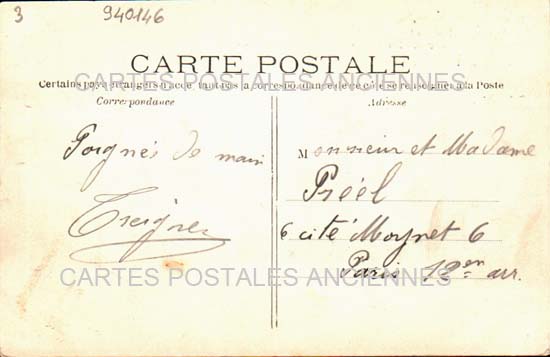 3
940146
CARTE POSTALE
CARTES POSTALES ANCIENNES
Certains pays étrangers n'acceptant pas la correspondance de ce côté se renseigner à la Poste
Correspondance
Adresse
Poignés de main
Treignez
Monsieur et Madame
Préel
6 cité Moynet 6
Paris 12en arr.
CARTES POSTALES ANCIENNES